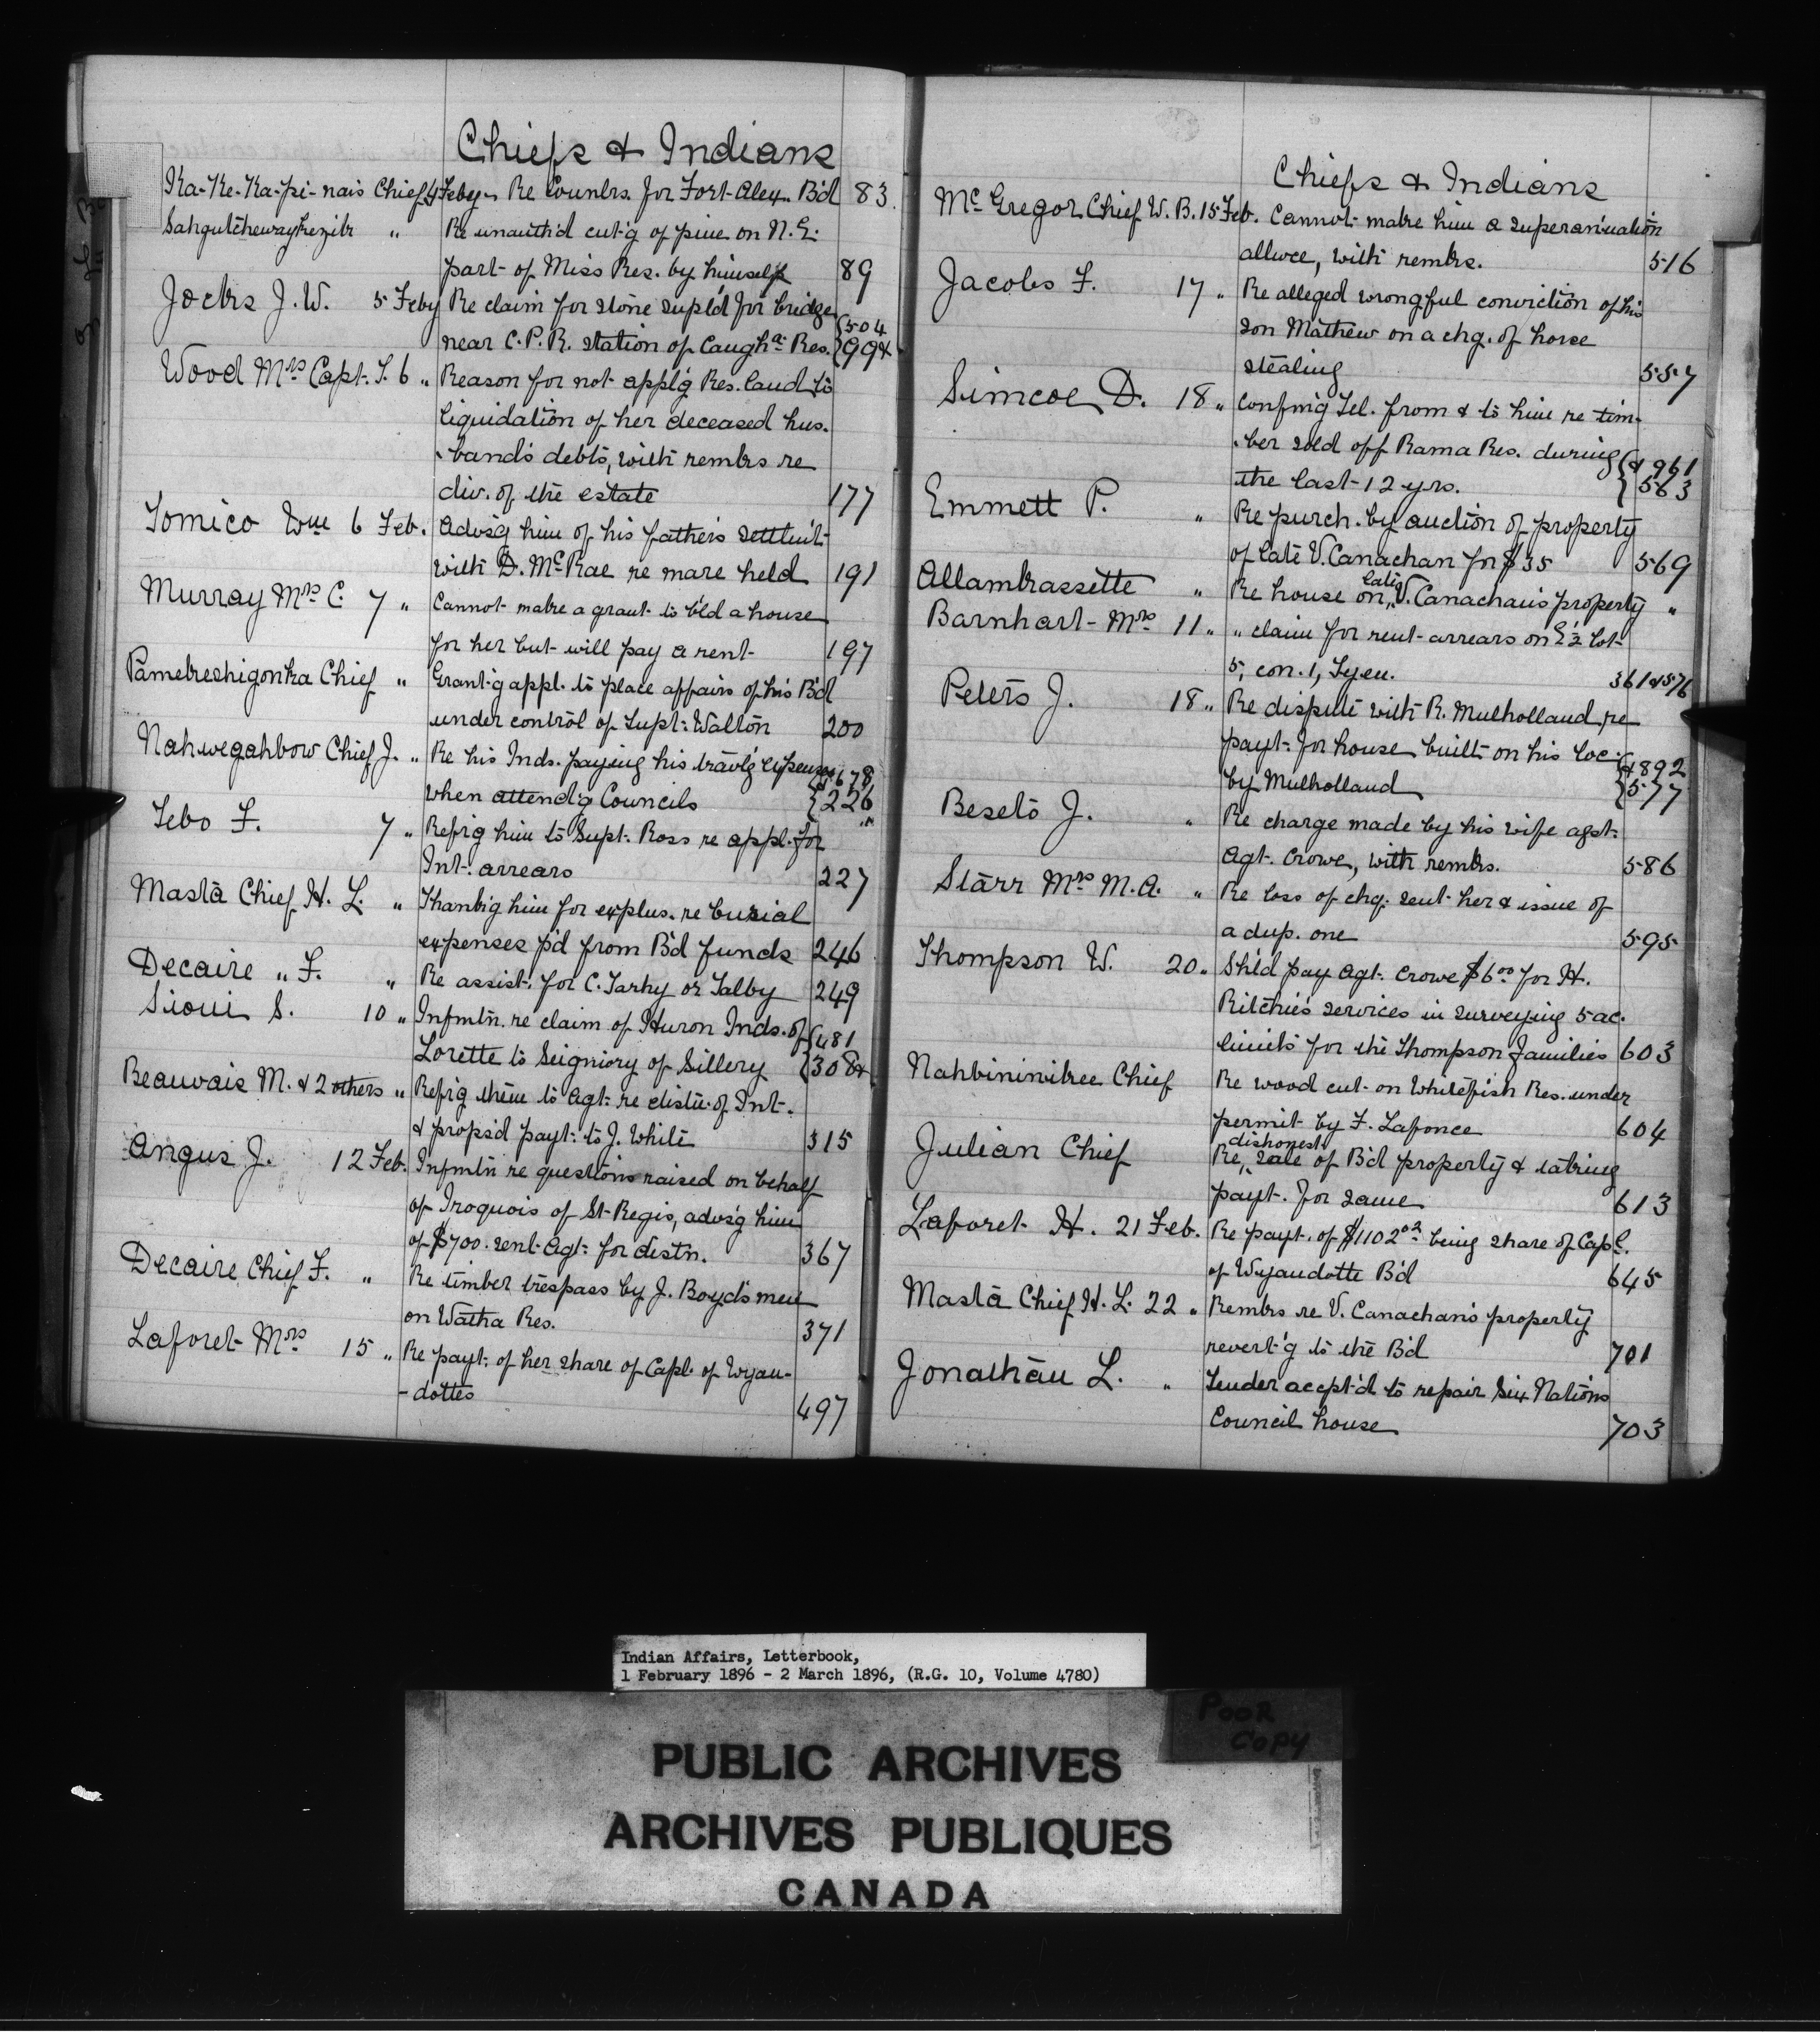 Chiefs & Indians
Ka-Ke-Ka-pi-nais Chief 4 Feby Re Counlrs. for Fort Alex. B'd 83
" Re unauth'd cut'g of pine on N.E.
part of Miss Res. by himself 89
Jocks J. W. 5 Feby Re claim for stone supl'd for bridge {504
near C.P.R. station of Caugha. Res. {99&
Wood Mrs Capt. T. 6 " Reason for not appl'g Res. land to
liquidation of her deceased hus-
-band's debts, with remks re
div. of the estate 177
Tomico Wm 6 Feb. Advs'g him of his father's settlm't
with D. McRae re mare held 191
Murray Mrs C. 7 " Cannot make a grant to b'ld a house
for her but will pay a rent 197
Pamekeshigonka Chief " Grant'g appl. to place affairs of his B'd
under control of Supt. Walton 200
Nahwegahbow Chief J. " Re his Inds. paying his travl'g expenses {&678
when attend'g Councils {226
Tebo F. 7 " Refr'g him to Supt. Ross re appl. for "
Int. arrears 227
Masta Chief H. L. " Thank'g him for explns. re burial
expenses p'd from B'd funds 246
Decaire " F. " Re assist. for C. Tarhy or Talby 249
Sioui S. 10 " Infmtn. re claim of Huron Inds. of {481
Lorette to Seigniory of Sillery {308&
Beauvais M. & 2 others " Refr'g them to Agt. re distn. of Int.
& props'd payt. to J. White 315
Angus J. 12 Feb. Infmtn re questions raised on behalf
of Iroquois of St Regis, advs'g him
of $700. sent Agt. for distn. 367
Decaire Chief F. " Re timber trespass by J. Boyd's men
on Watha Res. 371
Laforet Mrs 15 " Re payt. of her share of Capl. of Wyan-
-dottes 497
Chiefs & Indians
McGregor Chief W. B. 15 Feb. Cannot make him a superannuation
allwce, with remks. 516
Jacobs F. 17 " Re alleged wrongful conviction of his
son Mathew on a chg. of horse
stealing 557
Simcoe D. 18 " Confmg Tel. from & to him re tim-
-ber sold off Rama Res. during {&961
the last 12 yrs. {563
Emmett P. " Re purch. by auction of property
of late V. Canachan for $35 569
Allambrassette " Re house on late V. Canachan's property "
Barnhart Mrs 11 " " claim for rent arrears on E½ lot
5, con. 1, Tyen. 361&576
Peters J. 18 " Re dispute with R. Mulholland re
payt. for house built on his loc. {&892
by Mulholland {577
Beseto J. " Re charge made by his wife agst.
Agt. Crowe, with remks. 586
Starr Mrs M. A. " Re loss of chq. sent her & issue of
a dup. one 595
Thompson W. 20 " Sh'ld pay Agt. Crowe $6.00 for H.
Ritchie's services in surveying 5 ac.
limits for the Thompson families 603
Nahbininibee Chief Re wood cut on Whitefish Res. under
permit by F. Lafonce 604
Julian Chief Re dishonest sale of B'd property & taking
payt. for same 613
Laforet H. 21 Feb. Re payt. of $1102.02 being share of Capl.
of Wyandotte B'd 645
Masta Chief H. L. 22 " Remks re V. Canachan's property
revert'g to the B'd 701
Jonathan L. " Tender accept'd to repair Six Nations
Council house 703
Indian Affairs, Letterbook,
1 February 1896 - 2 March 1896, (R.G. 10, Volume 4780)
POOR
COPY
PUBLIC ARCHIVES
ARCHIVES PUBLIQUES
CANADA